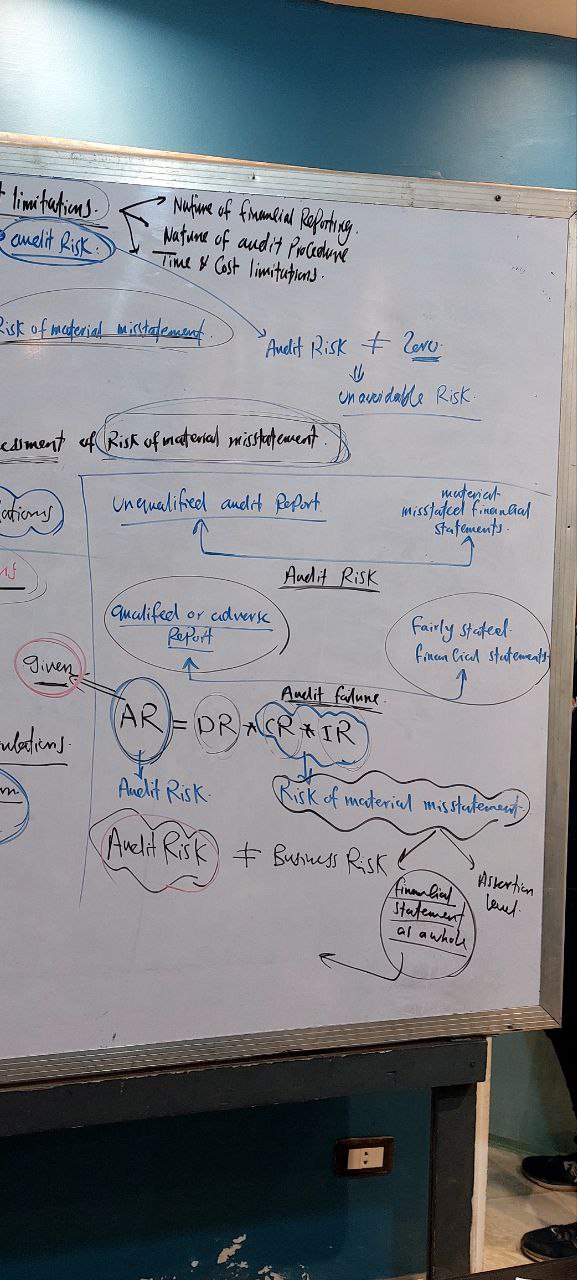 limitations.
Nature of financial Reporting.
Nature of audit Procedure
Time & Cost limitations.
audit Risk.
Risk of material misstatement.
Audit Risk ≠ Zero.
⇓
unavoidable Risk.
essment of Risk of material misstatement.
ations
Unqualified audit Report.
material
misstated financial
statements.
Audit Risk
qualifed or adverse
Report
Fairly stated
financial statements
given
Audit failure
AR = DR * CR * IR
Audit Risk.
Risk of material misstatement.
Audit Risk ≠ Business Risk
financial
statement
as a whole
Assertion
level.